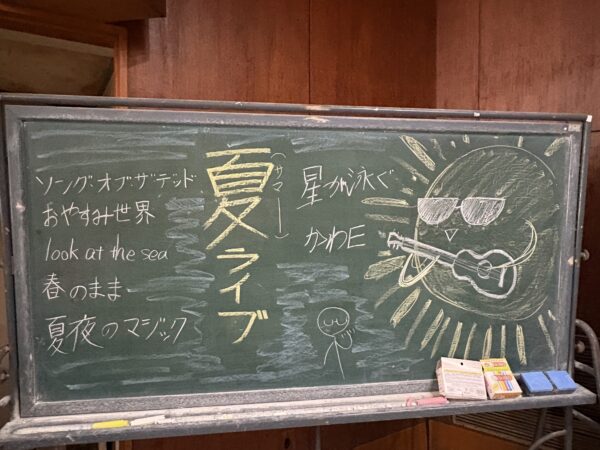 ソング・オブ・ザ・デッド
おやすみ世界
look at the sea
春のまま
夏夜のマジック
夏ライブ
(サマー)
星が泳ぐ
かわE